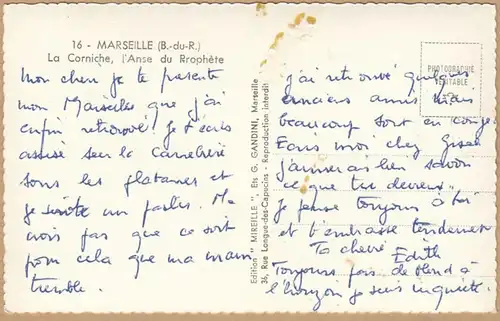 16 - MARSEILLE (B.-du-R.)
La Corniche, l'Anse du Rrophète
mon cheri je te presente
mon Marseille que j'ai
enfin retrouvé! Je t'écris
assise sur la Canebière
sous les platanes et
je sirote un pastis. Ne
crois pas que ce soit
pour cela que ma main
tremble.
Edition " MIREILLE ", Ets G. GANDINI, Marseille
36, Rue Longue-des-Capucins - Reproduction interdit
PHOTOGRAPHIE
VERITABLE
j'ai retrouvé quelques
anciens amis mais
beaucoup sont en congé.
Ecris moi chez
j'aimerais bien savoir
ce que tu deviens.
je pense toujours à toi
et t'embrasse tendrement
Ta cherie
Edith
Toujours pas de blond à
l'horizon je suis inquiète.